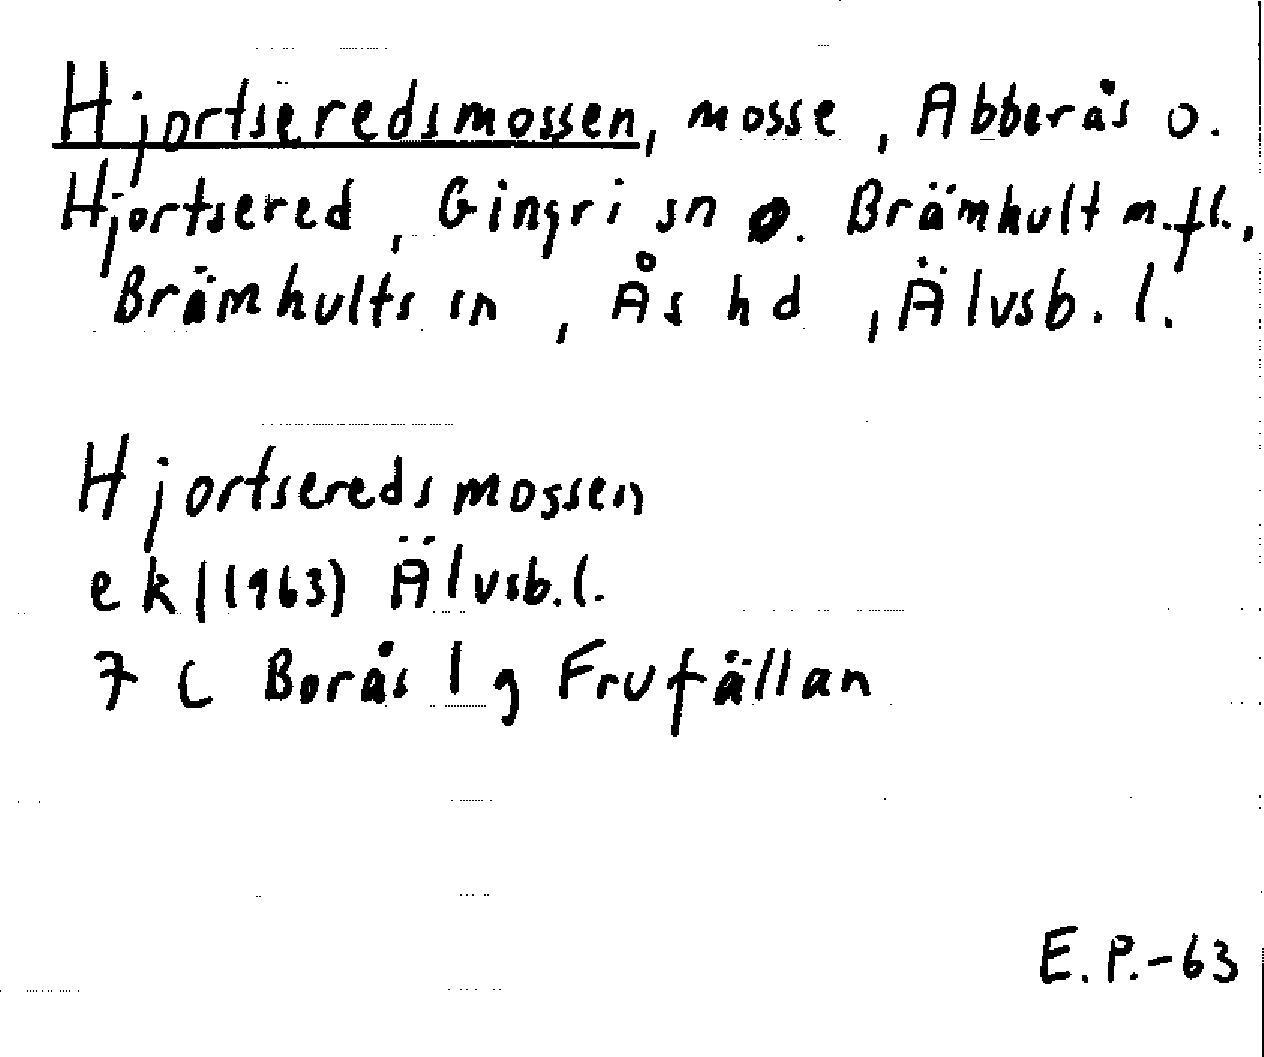 Hjortseredsmossen, mosse, Abberås o.
Hjortsered, Gingri sn o. Brämhult m.fl.,
Brämhults sn, Ås hd, Älvsb. l.
Hjortseredsmossen
ek (1963) Älvsb. l.
7 C Borås l g Frufällan
E.P.-63